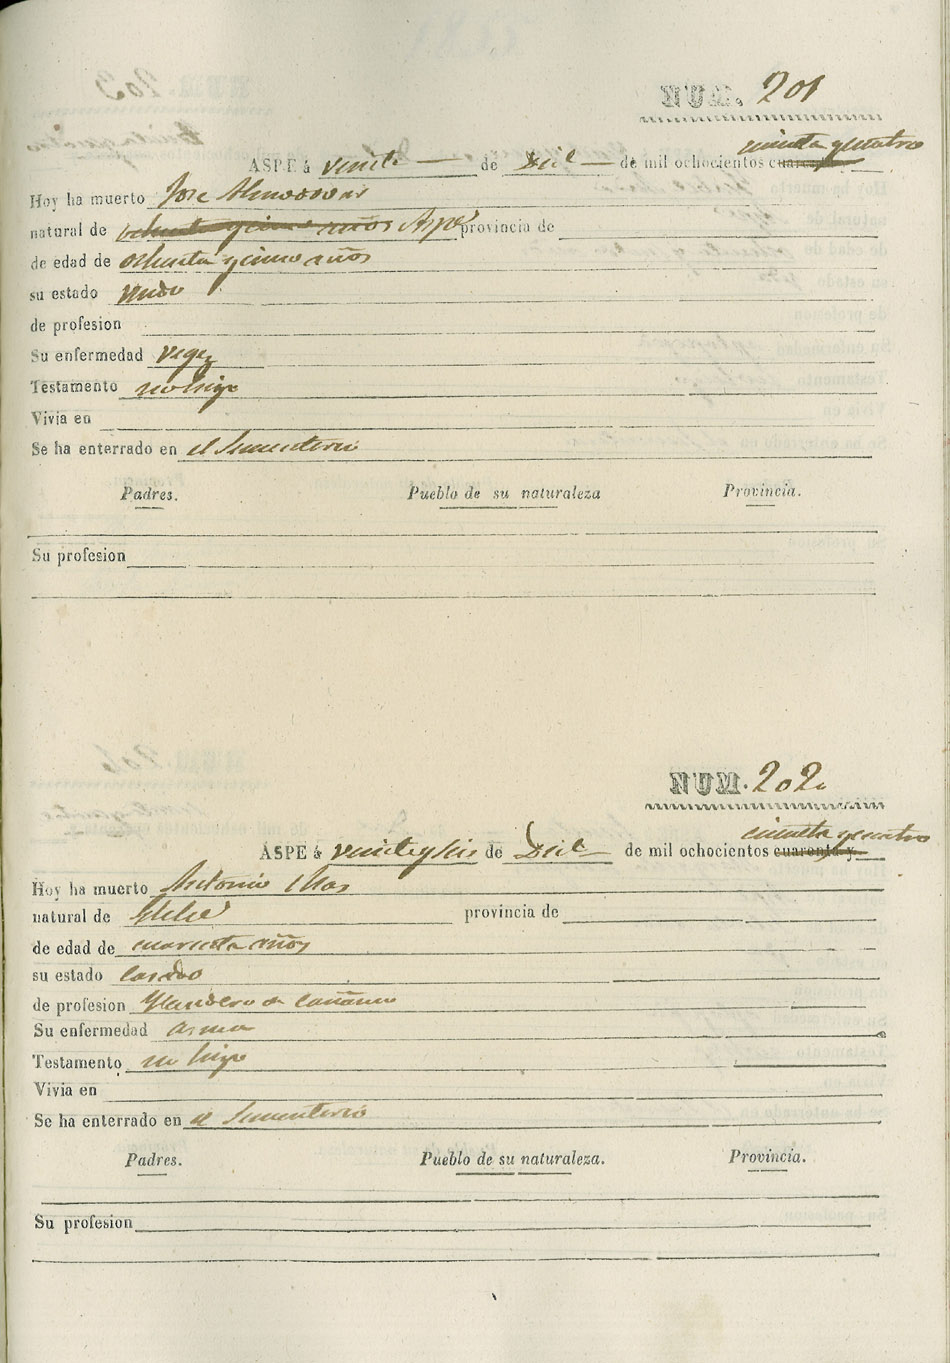 NUM. 201
cincuenta y cuatro
ASPE á veinte de Dic.e de mil ochocientos cuarenta
Hoy ha muerto Jose Almodovar
natural de ochenta y cinco años Aspe provincia de
de edad de ochenta y cinco años
su estado viudo
de profesion
Su enfermedad vegez
Testamento no hizo
Vivia en
Se ha enterrado en el Sementerio
Padres. Pueblo de su naturaleza Provincia.
Su profesion
NUM. 202
cincuenta y cuatro
ASPE á veinte y seis de Dic.e de mil ochocientos cuarenta y
Hoy ha muerto Antonio Mas
natural de Elche provincia de
de edad de cuarenta años
su estado casado
de profesion de cañamo
Su enfermedad asma
Testamento no hizo
Vivia en
Se ha enterrado en el Sementerio
Padres. Pueblo de su naturaleza. Provincia.
Su profesion